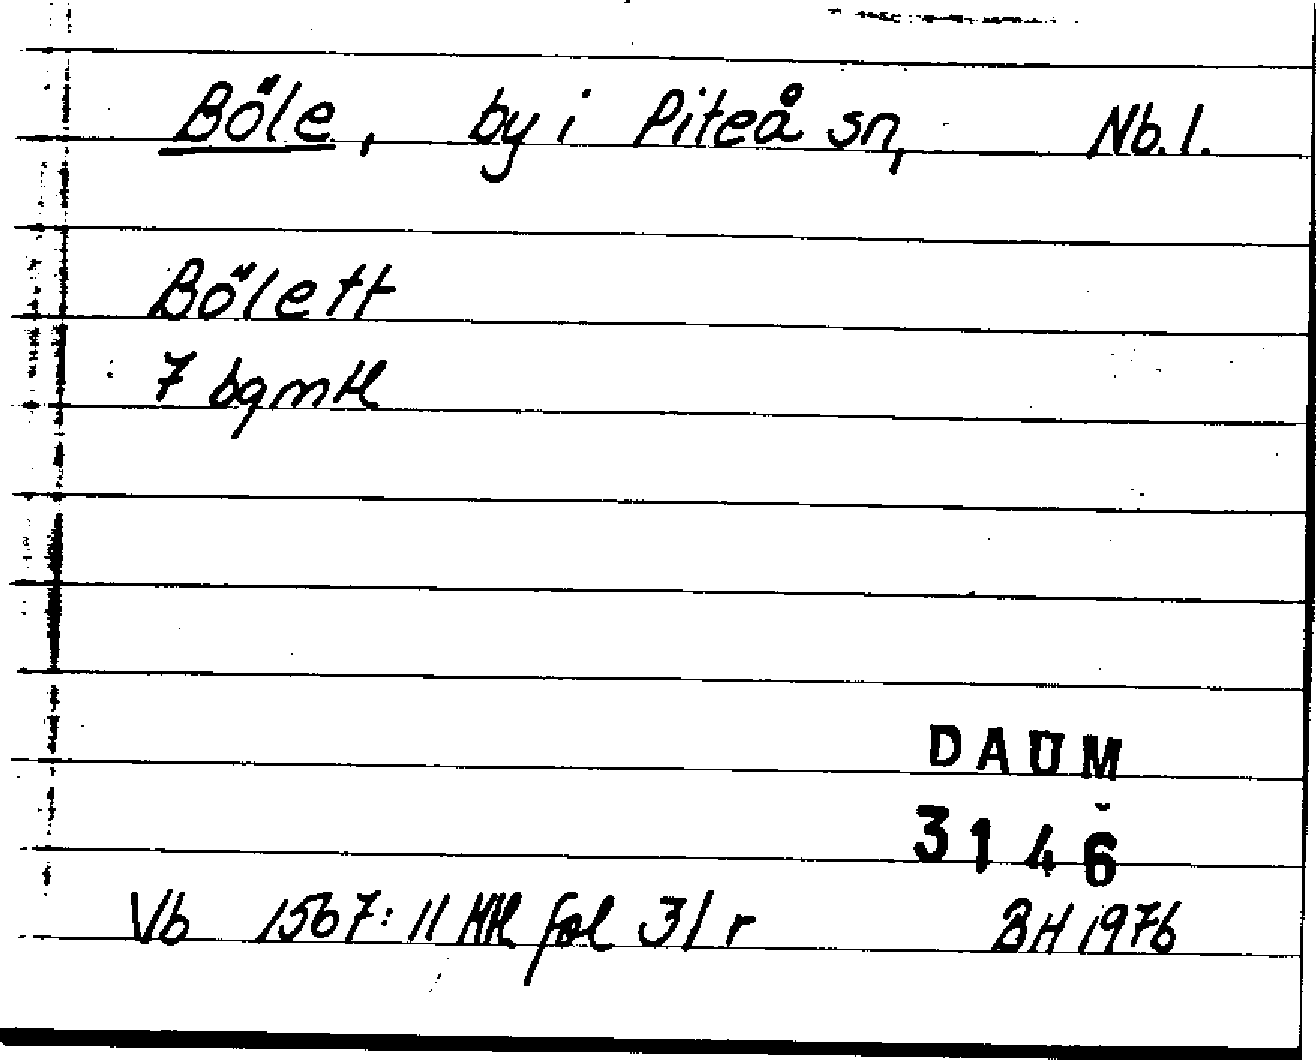 Böle, by i Piteå sn, Nb. l.
Bölett
7 bqmtl
DAUM
3146
Vb 1567: 11 Mtl fol 31 r BH 1976